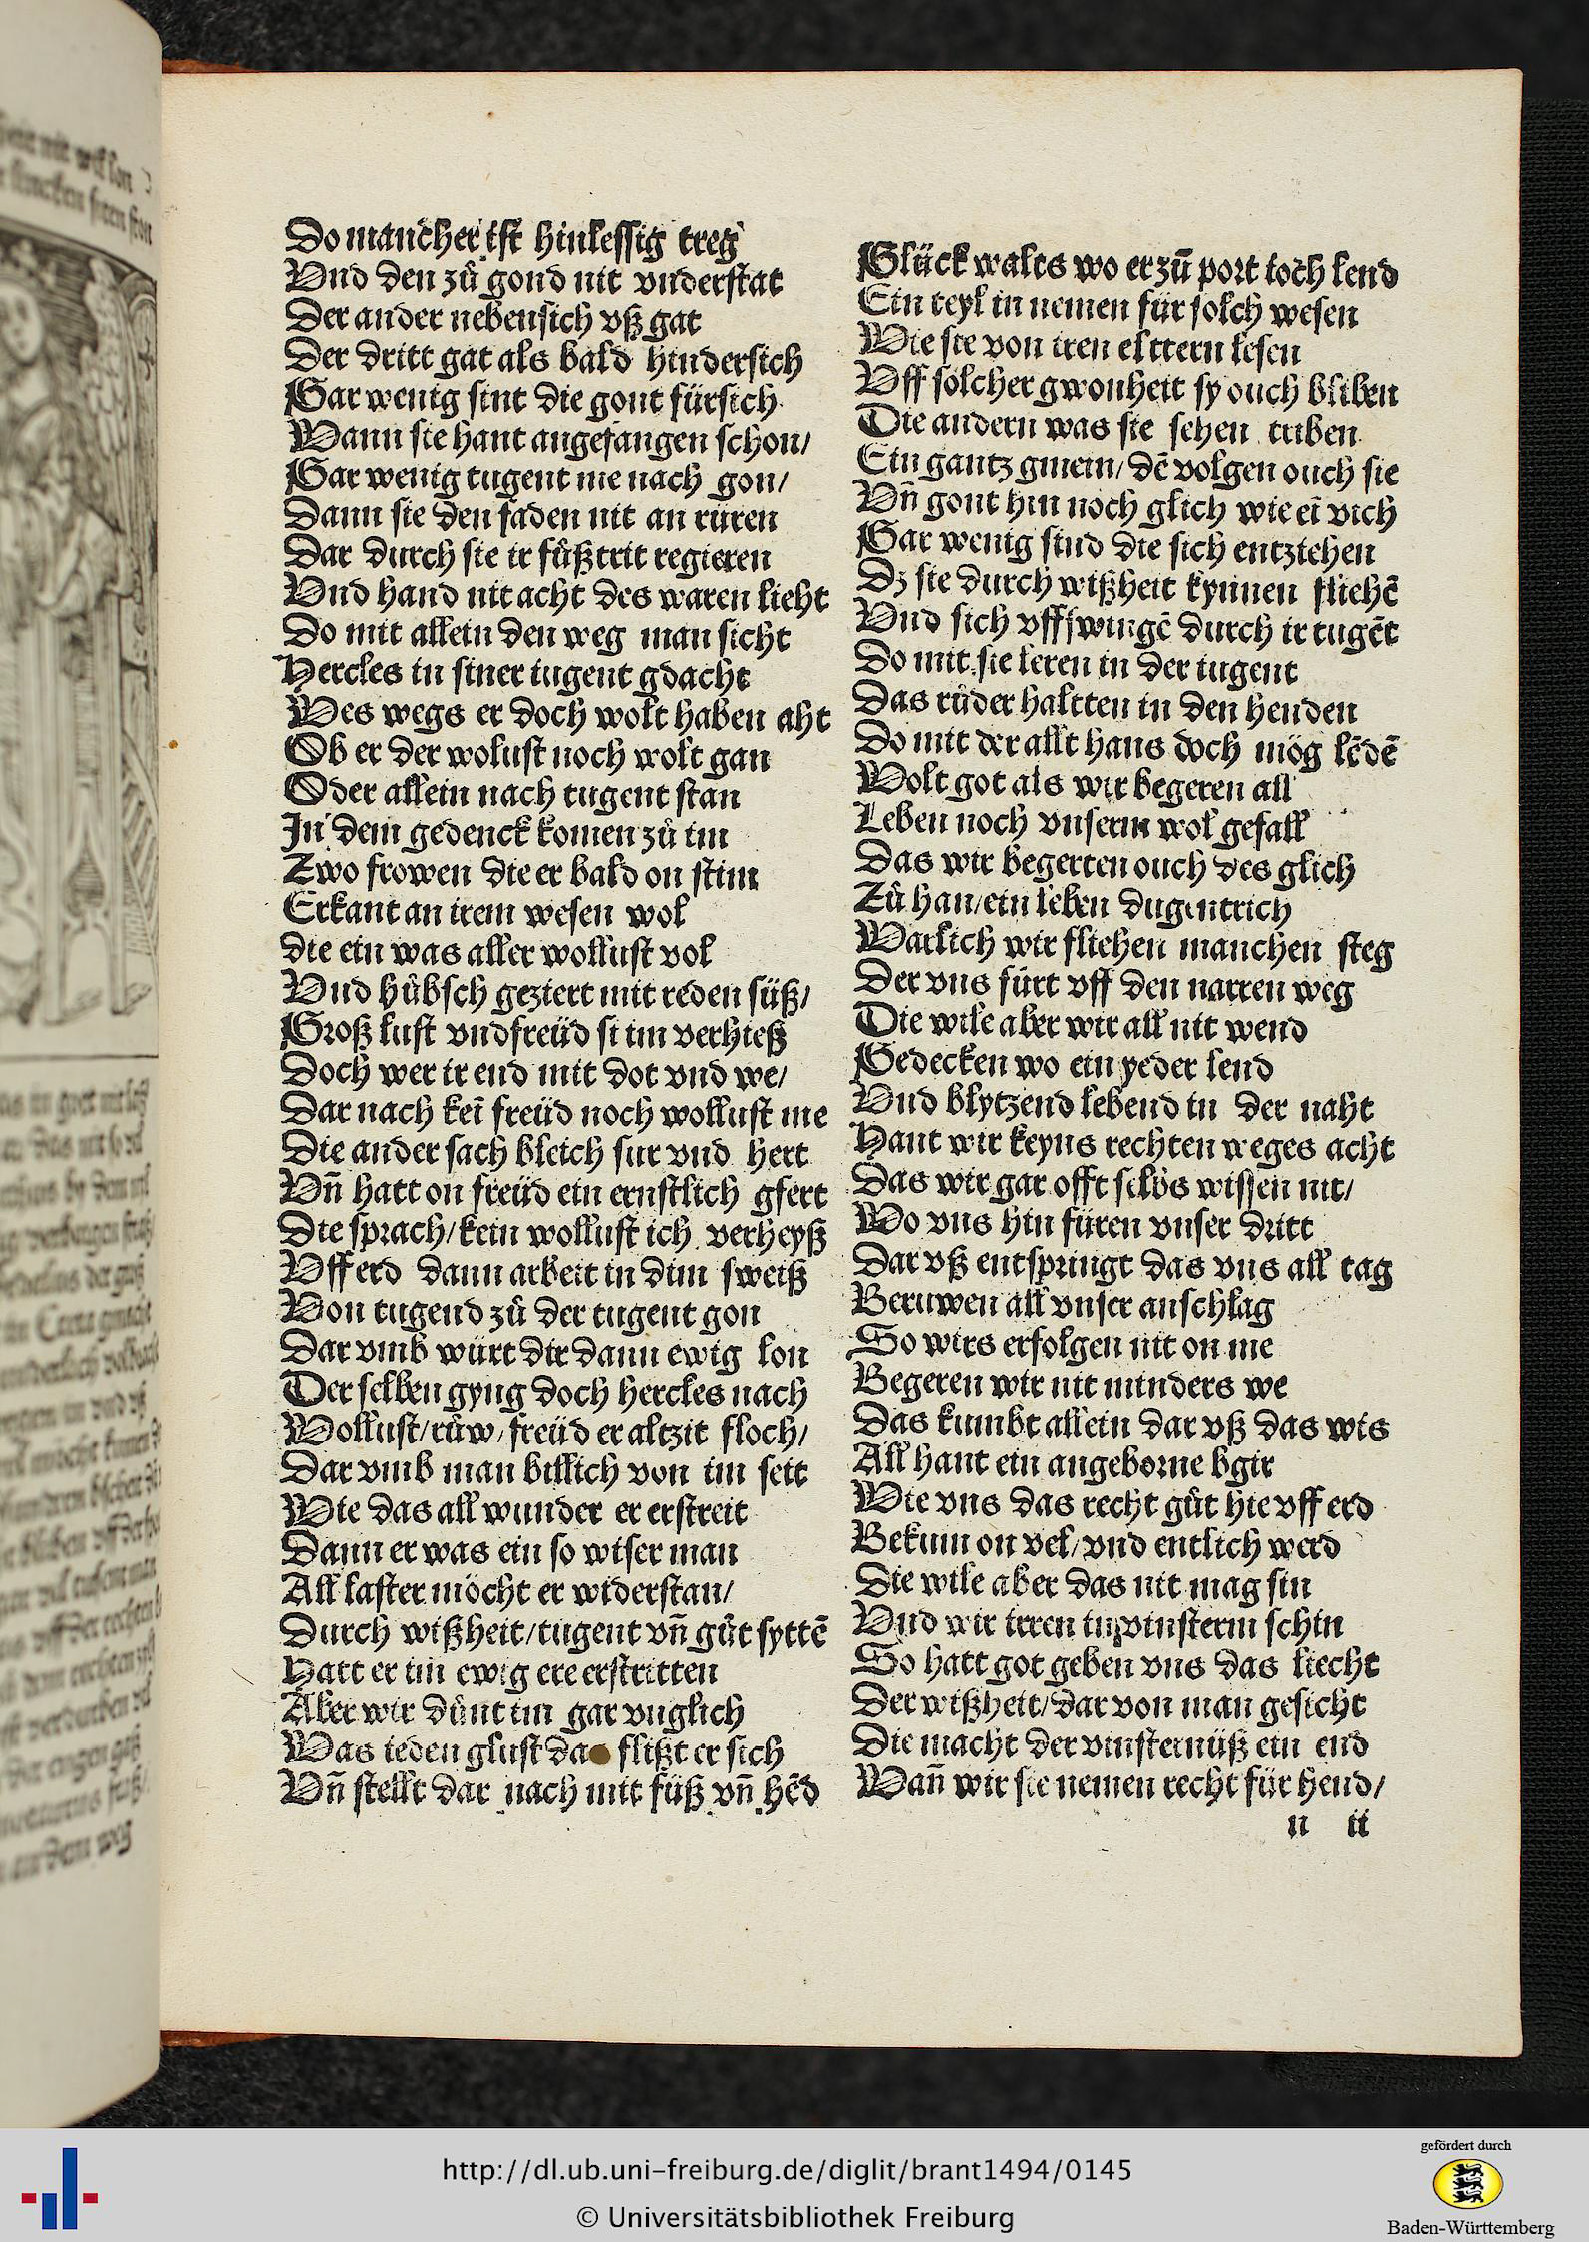 Do mancher ist hinlessig treg
Vnd den zů gond nit vnderstat
Der ander nebensich vß gat
Der dritt gat als bald hindersich
Gar wenig sint die gont fürsich
Wann sie hant angefangen schon/
Gar wenig tugent me nach gon/
Dann sie den faden nit an rüren
Dar durch sie ir fůßtrit regieren
Vnd hand nit acht des waren lieht
Do mit allein den weg man sicht
Hercles in siner iugent gdacht
Wes wegs er doch wolt haben aht
Ob er der wolust noch wolt gan
Oder allein nach tugent stan
In dem gedenck komen zů im
Zwo frowen die er bald on stim
Erkant an irem wesen wol
die ein was aller wollust vol
Vnd hůbsch geziert mit reden süß/
Groß lust vnd freüd si im verhieß
Doch wer ir end mit dot vnd we/
Dar nach keī freüd noch wollust me
Die ander sach bleich sur vnd hert
Vn̄ hatt on freüd ein ernstlich gfert
Die sprach/kein wollust ich verheyß
Vff erd dann arbeit in dim sweiß
Von tugend zů der tugent gon
Dar vmb würt dir dann ewig lon
Der selben gyng doch hercles nach
Wollust/růw/freüd er altzit floch/
Dar vmb man billich von im seit
Wie das all wunder er erstreit
Dann er was ein so wiser man
All laster möcht er widerstan/
Durch wißheit/tugent vn̄ gůt syttē
Hatt er im ewig ere erstritten
Aber wir důnt im gar vnglich
Was ieden glust da flißt er sich
Vn̄ stellt dar nach mit füß vn̄ hēd
Glück walts wo er zů port ioch lend
Ein teyl in nemen für solch wesen
Wie sie von iren elttern lesen
Vff sölcher gwonheit sy ouch bliben
Die andern was sie sehen triben
Ein gantz gmein/dē volgen ouch sie
Vn̄ gont hin noch glich wie eī vich
Gar wenig sind die sich entziehen
Dz sie durch wißheit kynnen fliehē
Vnd sich vffswingē durch ir tugēt
Do mit sie leren in der iugent
Das růder haltten in den henden
Do mit der allt hans doch mög lēdē
Wolt got als wir begeren all
Leben noch vnserm wol gefall
Das wir begerten ouch des glich
Zů han/ein leben dugintrich
Warlich wir fliehen manchen steg
Der vns fürt vff den narren weg
Die wile aber wir all nit wend
Gedecken wo ein yeder lend
Vnd blytzend lebend in der naht
Hant wir keyns rechten weges acht
Das wir gar offt selbs wissen nit/
Wo vns hin füren vnser dritt
Dar vß entspringt das vns all tag
Beruwen all vnser anschlag
So wirs erfolgen nit on me
Begeren wir nit minders we
Das kumbt allein dar vß das wis
All hant ein angeborne bgir
Wie vns das recht gůt hie vff erd
Bekum on vel/vnd entlich werd
Die wile aber das nit mag sin
Vnd wir irren in vinsterm schin
So hatt got geben vns das liecht
Der wißheit/dar von man gesicht
Die macht der vinsternüß ein end
Wan̄ wir sie nemen recht für hend/
n ii
http://dl.ub.uni-freiburg.de/diglit/brant1494/0145
© Universitätsbibliothek Freiburg
gefördert durch
Baden-Württemberg